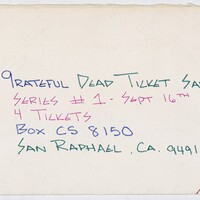 GRATEFUL DEAD TICKET SA
SERIES #1 - SEPT 16TH
4 TICKETS
BOX CS 8150
SAN RAPHAEL, CA. 9491